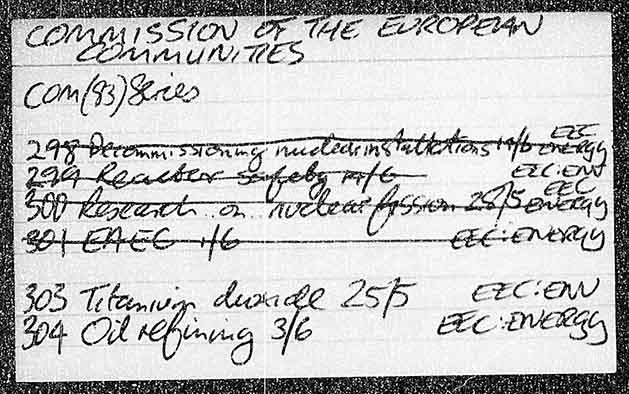 COMMISSION OF THE EUROPEAN
COMMUNITIES
COM(83) Series
298 Decommissioning nuclear installations 14/6 EEC ENERGY
299 Reactor safety 14/6 EEC:ENV
300 Research on nuclear fission 25/5 EEC ENERGY
301 EAEC 1/6 EEC:ENERGY
303 Titanium dioxide 25/5 EEC:ENV
304 Oil refining 3/6 EEC:ENERGY